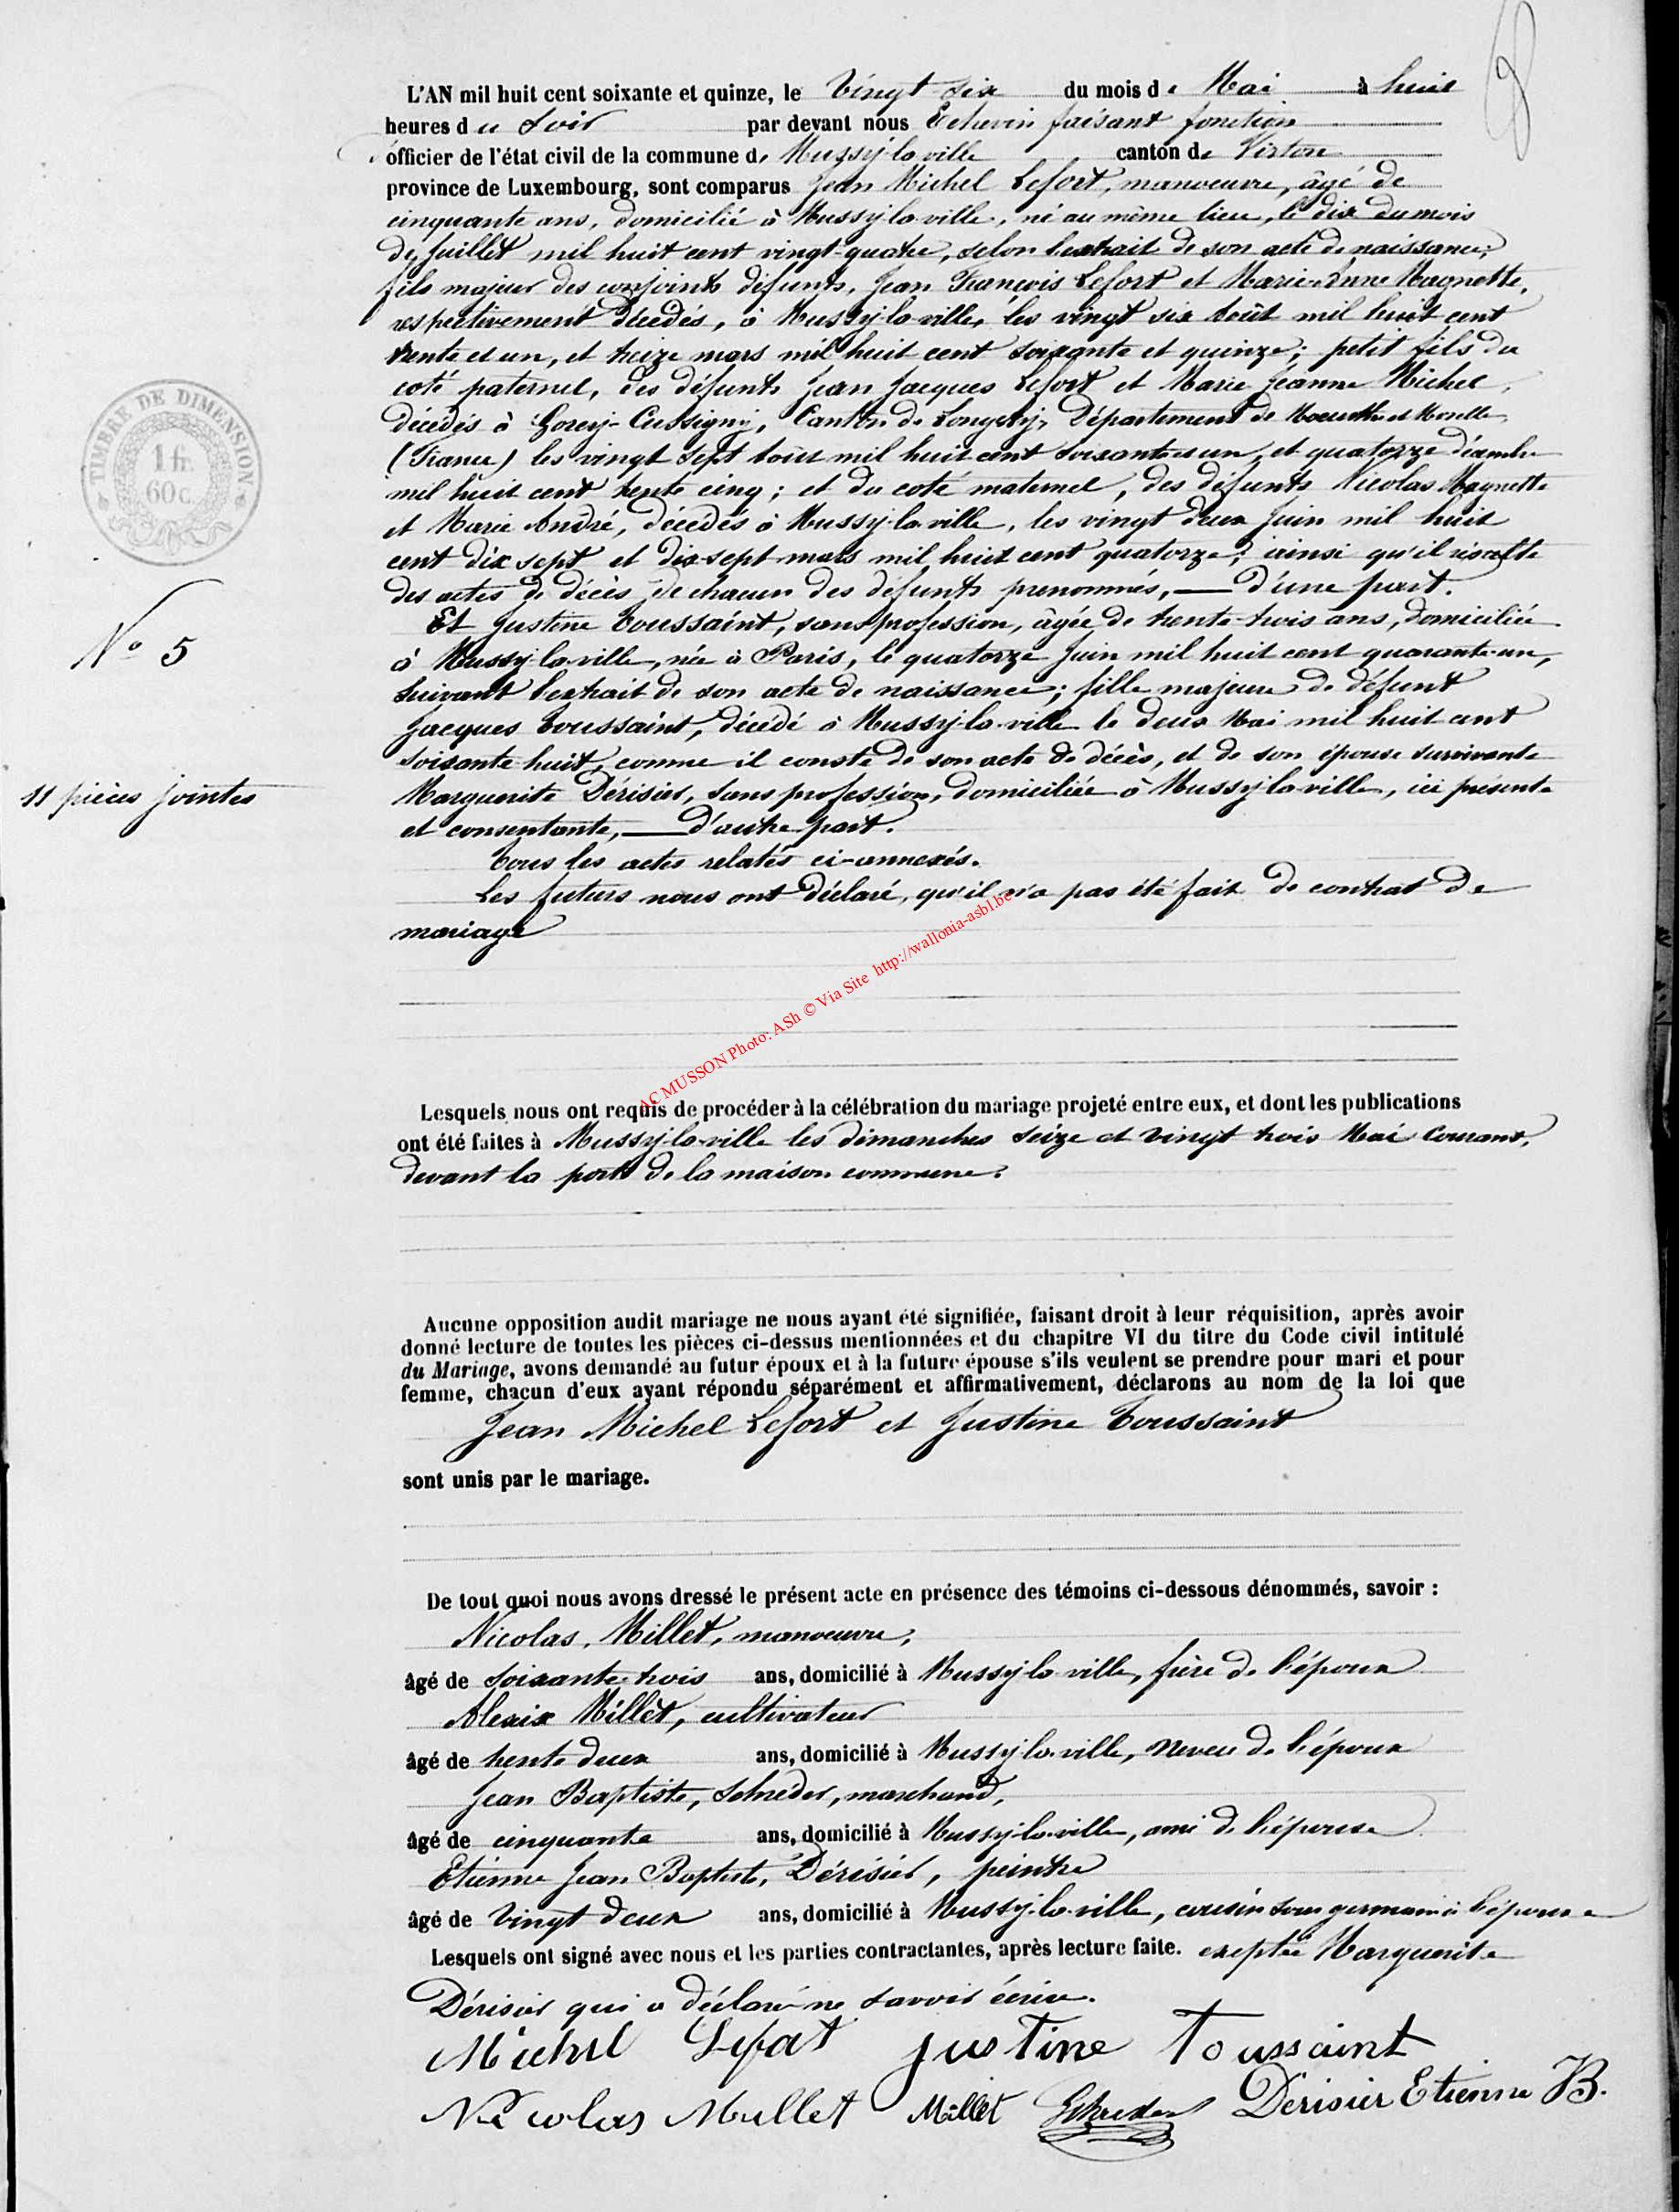 L'AN mil huit cent soixante et quinze, le Vingt six du mois de Mai à huit
heures du Soir par devant nous Echevin faisant fonction
officier de l'état civil de la commune de Mussy-la-ville canton de Virton
province de Luxembourg, sont comparus Jean Michel Lefort, manoeuvre, âgé de
cinquante ans, domicilié à Mussy-la-ville, né au même lieu, le dix du mois
de Juillet mil huit cent vingt-quatre, selon l'extrait de son acte de naissance;
fils majeur des conjoints défunts, Jean François Lefort et Marie-Anne Magnette,
respectivement décédés, à Mussy-la-ville, les vingt six Août mil huit cent
trente et un, et treize mars mil huit cent soixante et quinze; petit fils du
coté paternel, des défunts Jean Jacques Lefort et Marie Jeanne Michel,
décédés à Gorcy-Cussigny, Canton de Longwy, Département de Meurthe et Moselle
(France) les vingt sept Août mil huit cent soixante et un, et quatorze décembre
mil huit cent trente cinq; et du coté maternel, des défunts Nicolas Magnette
et Marie André, décédés à Mussy-la-ville, les vingt deux Juin mil huit
cent dix sept et dix-sept mars mil huit cent quatorze; ainsi qu'il résulte
des actes de décès de chacun des défunts prenommés, — d'une part.
Et Justine Toussaint, sans profession, âgée de trente-trois ans, domiciliée
à Mussy-la-ville, née à Paris, le quatorze Juin mil huit cent quarante-un,
suivant l'extrait de son acte de naissance; fille majeure de défunt
Jacques Toussaint, décédé à Mussy-la-ville le deux Mai mil huit cent
soixante huit, comme il conste de son acte de décès, et de son épouse survivante
Marguerite Dérisier, sans profession, domiciliée à Mussy-la-ville, ici présente
et consentante, — d'autre part.
Tous les actes relatés ci-annexés.
Les futurs nous ont déclaré, qu'il n'a pas été fait de contrat de
mariage
TIMBRE DE DIMENSION
1 fr.
60 c.
Nº 5
11 pièces jointes
AC MUSSON Photo: ASh © Via Site http://wallonia-asbl.be
Lesquels nous ont requis de procéder à la célébration du mariage projeté entre eux, et dont les publications
ont été faites à Mussy-la-ville les dimanches seize et vingt trois Mai courant,
devant la porte de la maison commune.
Aucune opposition audit mariage ne nous ayant été signifiée, faisant droit à leur réquisition, après avoir
donné lecture de toutes les pièces ci-dessus mentionnées et du chapitre VI du titre du Code civil intitulé
du Mariage, avons demandé au futur époux et à la future épouse s'ils veulent se prendre pour mari et pour
femme, chacun d'eux ayant répondu séparément et affirmativement, déclarons au nom de la loi que
Jean Michel Lefort et Justine Toussaint
sont unis par le mariage.
De tout quoi nous avons dressé le présent acte en présence des témoins ci-dessous dénommés, savoir :
Nicolas, Millet, manoeuvre,
âgé de soixante-trois ans, domicilié à Mussy-la-ville, frère de l'époux
Alexix Millet, cultivateur
âgé de trente deux ans, domicilié à Mussy-la-ville, neveu de l'époux
Jean Baptiste, Schreder, marchand,
âgé de cinquante ans, domicilié à Mussy-la-ville, ami de l'épouse
Etienne Jean Baptiste, Dérisier, peintre
âgé de vingt deux ans, domicilié à Mussy-la-ville, cousin sous germain à l'épouse
Lesquels ont signé avec nous et les parties contractantes, après lecture faite. exeptée Marguerite
Dérisier qui a déclaré ne savoir écrire.
Michel Lefort Justine Toussaint
Nicolas Mullet Millet Schreder Dérisier Etienne JB.